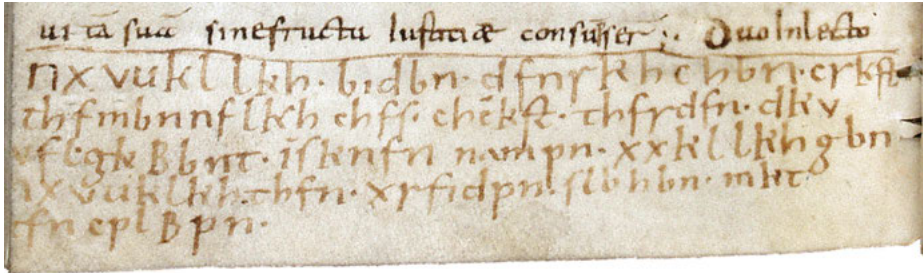 ui tā suā sinefructu Iusticiæ consūser ;. Quo Inlecto
nx vukllkh. bidbn. dfnrkhchbn. crkst
thfmbnnflkhchfs. chēkst. thfrdfn. dkev
fl. gkBbnt. iskenfn nampn. xxkllkhgbn.
nx vukllkh. thfn. xrfidpn. slbhbn. mkt
fn cplBpn.